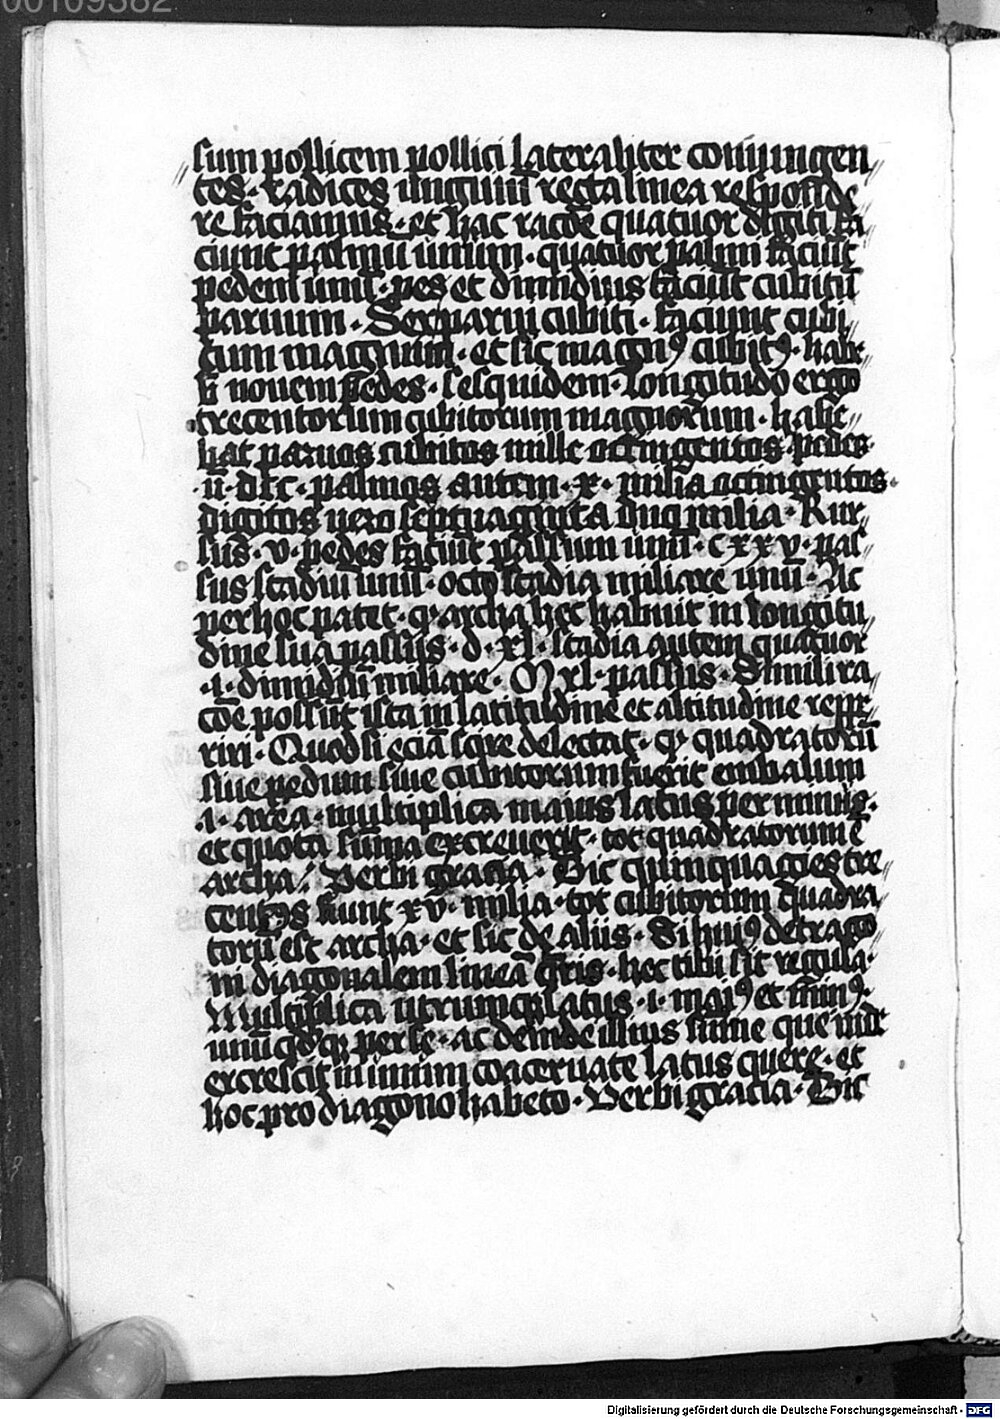 00109382
sum pollicem pollici lateraliter coniungen//
tes · radices unguiū recta linea respōde
re faciamus · et hac racōe quatuor digiti fa//
ciunt palmū unum · quatuor palmi faciūt
pedem unū · pes et dimidius faciūt cubitū
paruum · Sex parui cubiti · faciunt cubi//
tum magnum · et sic magnꝰ cubitꝰ · habe//
bit novem pedes · sesquidem · Longitudo ergo
trecentorum cubitorum magnorum · habe//
bat paruos cubitos mille octingentos · pedes
· ii · dcc · palmos autem · x · milia octingentos ·
digitos uero septuaginta duo milia · Rur//
sus · v · pedes faciūt passum unū · cxxv · pas//
sus stadiū unū · octo stadia miliare unū · Ac
per hoc patet · ꝙ archa hec habuit in longitu//
dine sua passus · d · xl · stadia autem quatuor
· i · dimidiū miliare · Mxl · passus · Simili ra//
cōe possūt ista in latitudine et altitudine reppe//
riri · Quod si eciā scire delectat · ꝙ quadratorū
siue pedum siue cubitorum fuerit embalum
· i · area · multiplica maius latus per minus ·
et quota sūma excreuerit · tot quadratorum ē
archa · Verbi gracia · Dic quinquagies tre//
centos fiunt xv · milia · tot cubitorum quadra//
torū est archa · et sic de aliis · Si huiꝰ detrago//
ni diagonalem lineā q̄ris · hec tibi sit regula ·
Multiplica utrumqꝫ latus · i · maiꝰ et minꝰ ·
unūqdqꝫ per se · ac deinde illius sūme que inde
excrescit in unum coaceruate latus quere · et
hoc pro diagono habeto · Verbi gracia · Dic
Digitalisierung gefördert durch die Deutsche Forschungsgemeinschaft - DFG